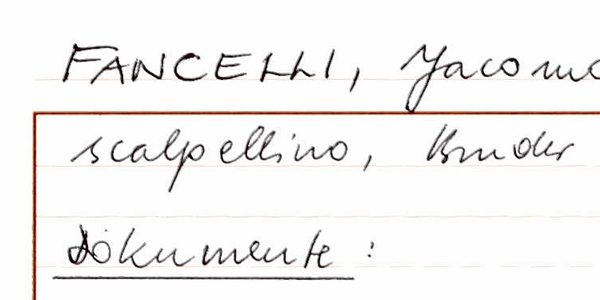 FANCELLI, Jacomo
scalpellino, Bruder
Dokumente: